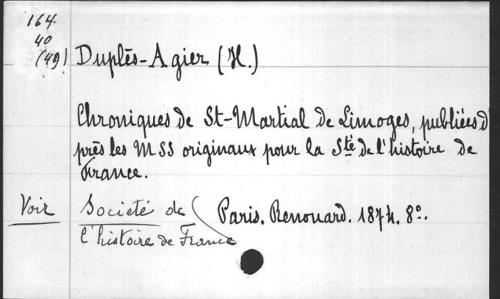 164
40
(49) Duplès-Agier (H.)
Chroniques de St-Martial de Limoges, publiées d
près les MSS originaux pour la Sté de l'histoire de
France.
Voir Société de Paris. Renouard. 1874. 8º.
l'histoire de France